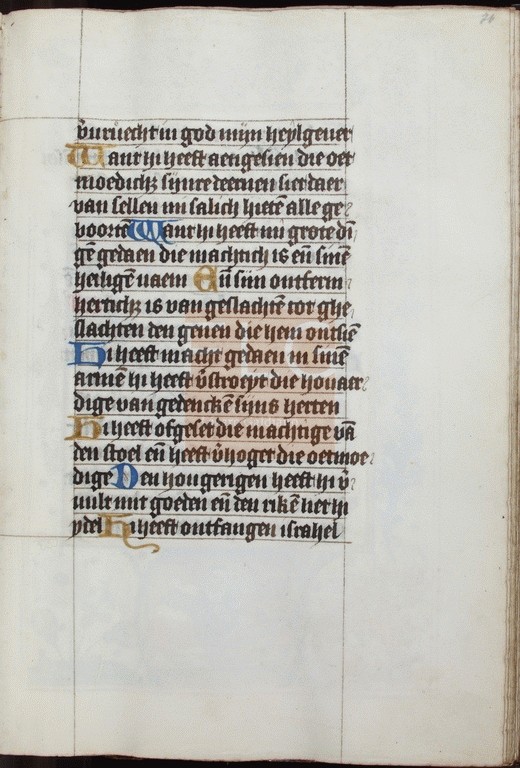 v̄uruecht in god mijn heylgeuer
Want hi heeft aengesien die oet
moedichz sijnre deernen siet daer
van sellen mi salich hietē alle ge
voortē Want hi heeft mi grote dī
gē gedaen die machtich is eñ sinē
heiligē naem Eñ sijn ontferm
hertichz is van geslachtē tot ghe
slachten den genen die hem ontsiē
Hi heeft macht gedaen in sinē
armē hi heeft v̄stroeyt die houaer
dige van gedenckē sijns herten
Hi heeft ofgeset die machtige vā
den stoel eñ heeft v̄hoget die oetmoe
dige Den hongerigen heeft hi v̄
uult mit goeden eñ den rikē liet hi
ydel Hi heeft ontfangen israhel